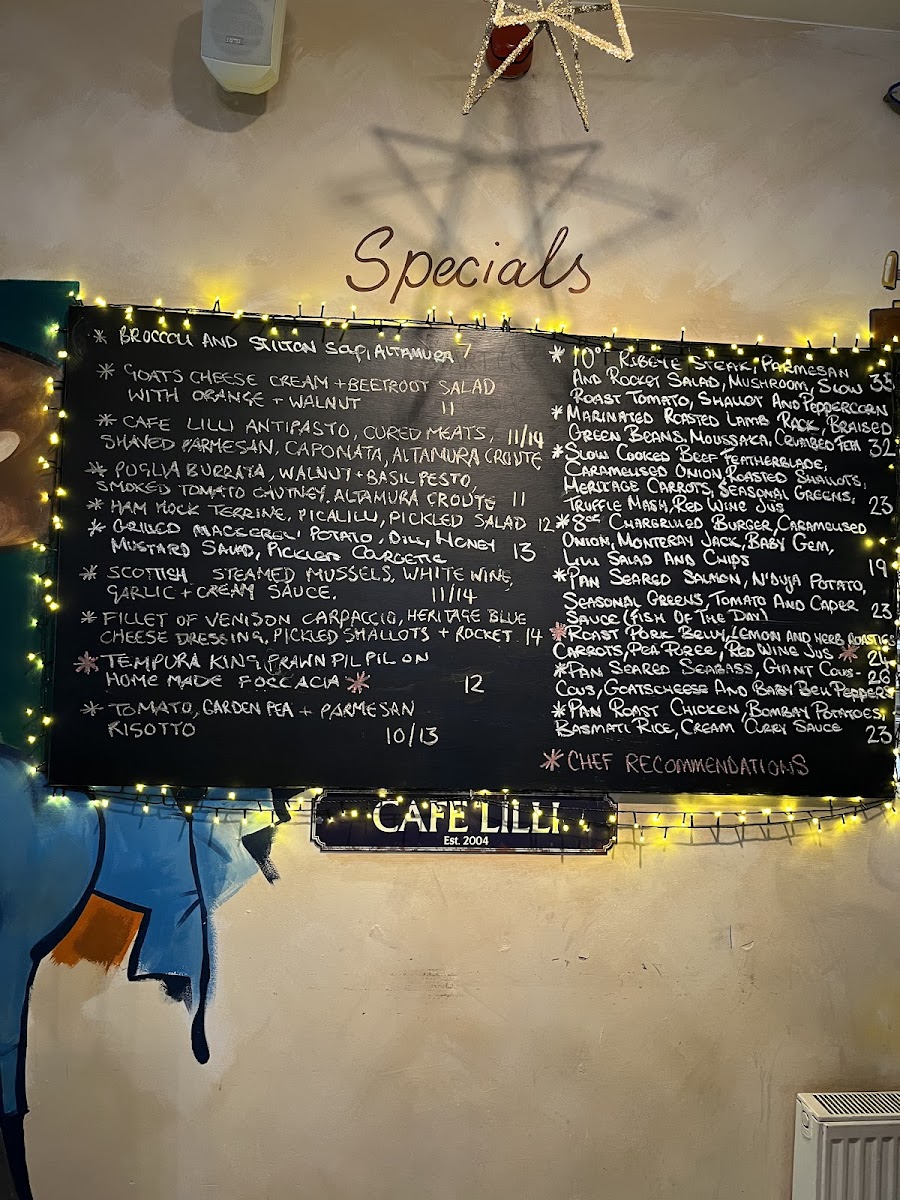 Specials
* BROCCOLI AND STILTON SOUP, ALTAMURA 7
* GOATS CHEESE CREAM + BEETROOT SALAD
WITH ORANGE + WALNUT 11
* CAFE LILLI ANTIPASTO, CURED MEATS, 11/14
SHAVED PARMESAN, CAPONATA, ALTAMURA CROUTE
* PUGLIA BURRATA, WALNUT + BASIL PESTO,
SMOKED TOMATO CHUTNEY, ALTAMURA CROUTE 11
* HAM HOCK TERRINE, PICALILLI, PICKLED SALAD 12
* GRILLED MACKEREL, POTATO, DILL, HONEY
MUSTARD SALAD, PICKLED COURGETTE 13
* SCOTTISH STEAMED MUSSELS, WHITE WINE,
GARLIC + CREAM SAUCE. 11/14
* FILLET OF VENISON CARPACCIO, HERITAGE BLUE
CHEESE DRESSING, PICKLED SHALLOTS + ROCKET. 14
* TEMPURA KING PRAWN PIL PIL ON
HOME MADE FOCCACIA * 12
* TOMATO, GARDEN PEA + PARMESAN
RISOTTO 10/13
* 10oz RIBEYE STEAK, PARMESAN
AND ROCKET SALAD, MUSHROOM, SLOW 33
ROAST TOMATO, SHALLOT AND PEPPERCORN
* MARINATED ROASTED LAMB RACK, BRAISED
GREEN BEANS, MOUSSAKA, CRUMBED FETA 32
* SLOW COOKED BEEF FEATHERBLADE,
CARAMELISED ONION, ROASTED SHALLOTS,
HERITAGE CARROTS, SEASONAL GREENS,
TRUFFLE MASH, RED WINE JUS 23
* 8oz CHARGRILLED BURGER, CARAMELISED
ONION, MONTERAY JACK, BABY GEM,
LILLI SALAD AND CHIPS 19
* PAN SEARED SALMON, N'DUJA POTATO,
SEASONAL GREENS, TOMATO AND CAPER
SAUCE (FISH OF THE DAY) 23
* ROAST PORK BELLY, LEMON AND HERB ROASTIES
CARROTS, PEA PUREE, RED WINE JUS * 24
* PAN SEARED SEABASS, GIANT COUS- 26
COUS, GOATSCHEESE AND BABY BELL PEPPERS
* PAN ROAST CHICKEN, BOMBAY POTATOES,
BASMATI RICE, CREAM CURRY SAUCE 23
* CHEF RECOMMENDATIONS
CAFE LILLI
Est. 2004